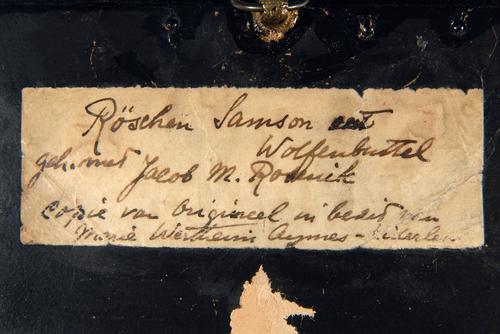 Röschen Samson uit
Wolfenbuttel
geh. met Jacob M.
copie van Origineel in besit van
Marie Wertheim Aymes -